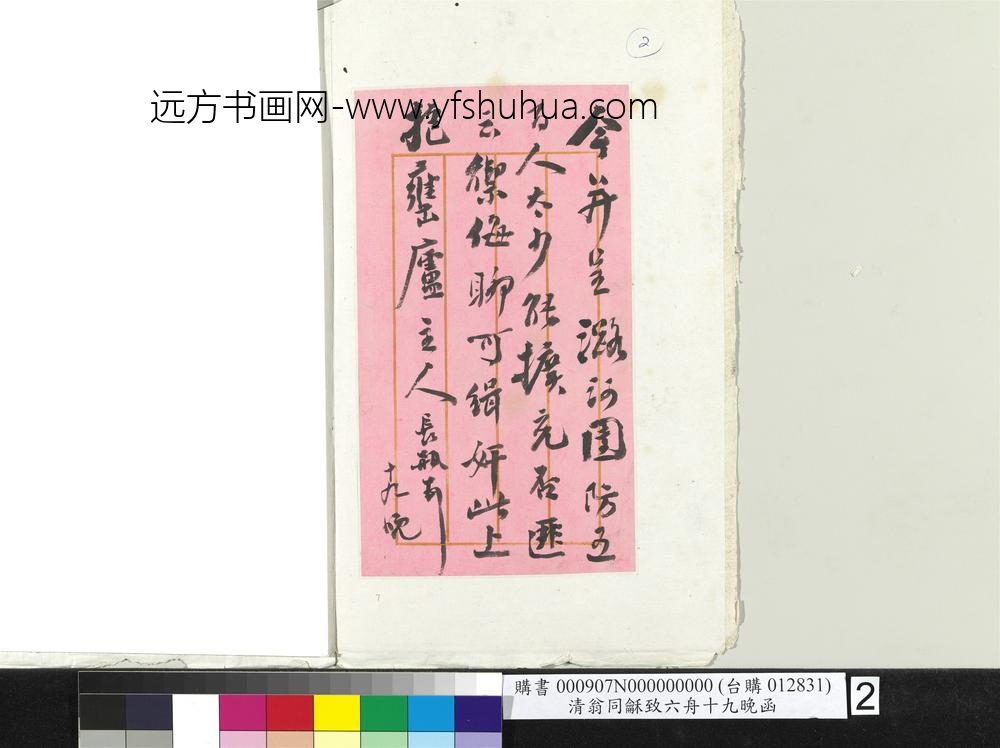 2
远方书画网-www.yfshuhua.com
今并呈潞河團防五
百人太少能擴充否匪
云禦侮聊可緝奸此上
抱罋廬主人
十九晚
7
購書 000907N000000000 (台購 012831)
清翁同龢致六舟十九晚函
2